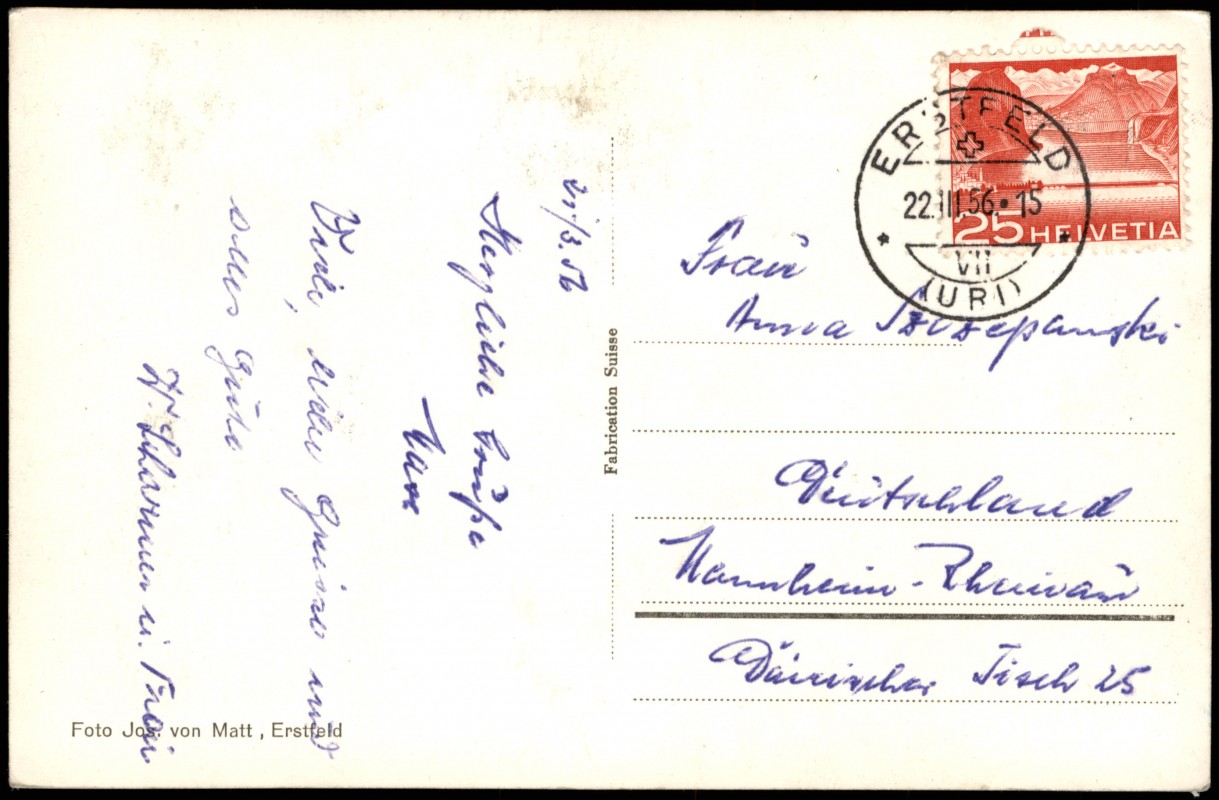 21/3.56
Herzliche Grüße
Viele, viele Grüsse und
alles Gute
u. Frau
Foto Jos. von Matt, Erstfeld
Fabrication Suisse
ERSTFELD
2
22.III.56.15
VII
(URI)
25 HELVETIA
Frau
Anna Szczepanski
Deutschland
Mannheim-Rheinau
Dänischer Tisch 25